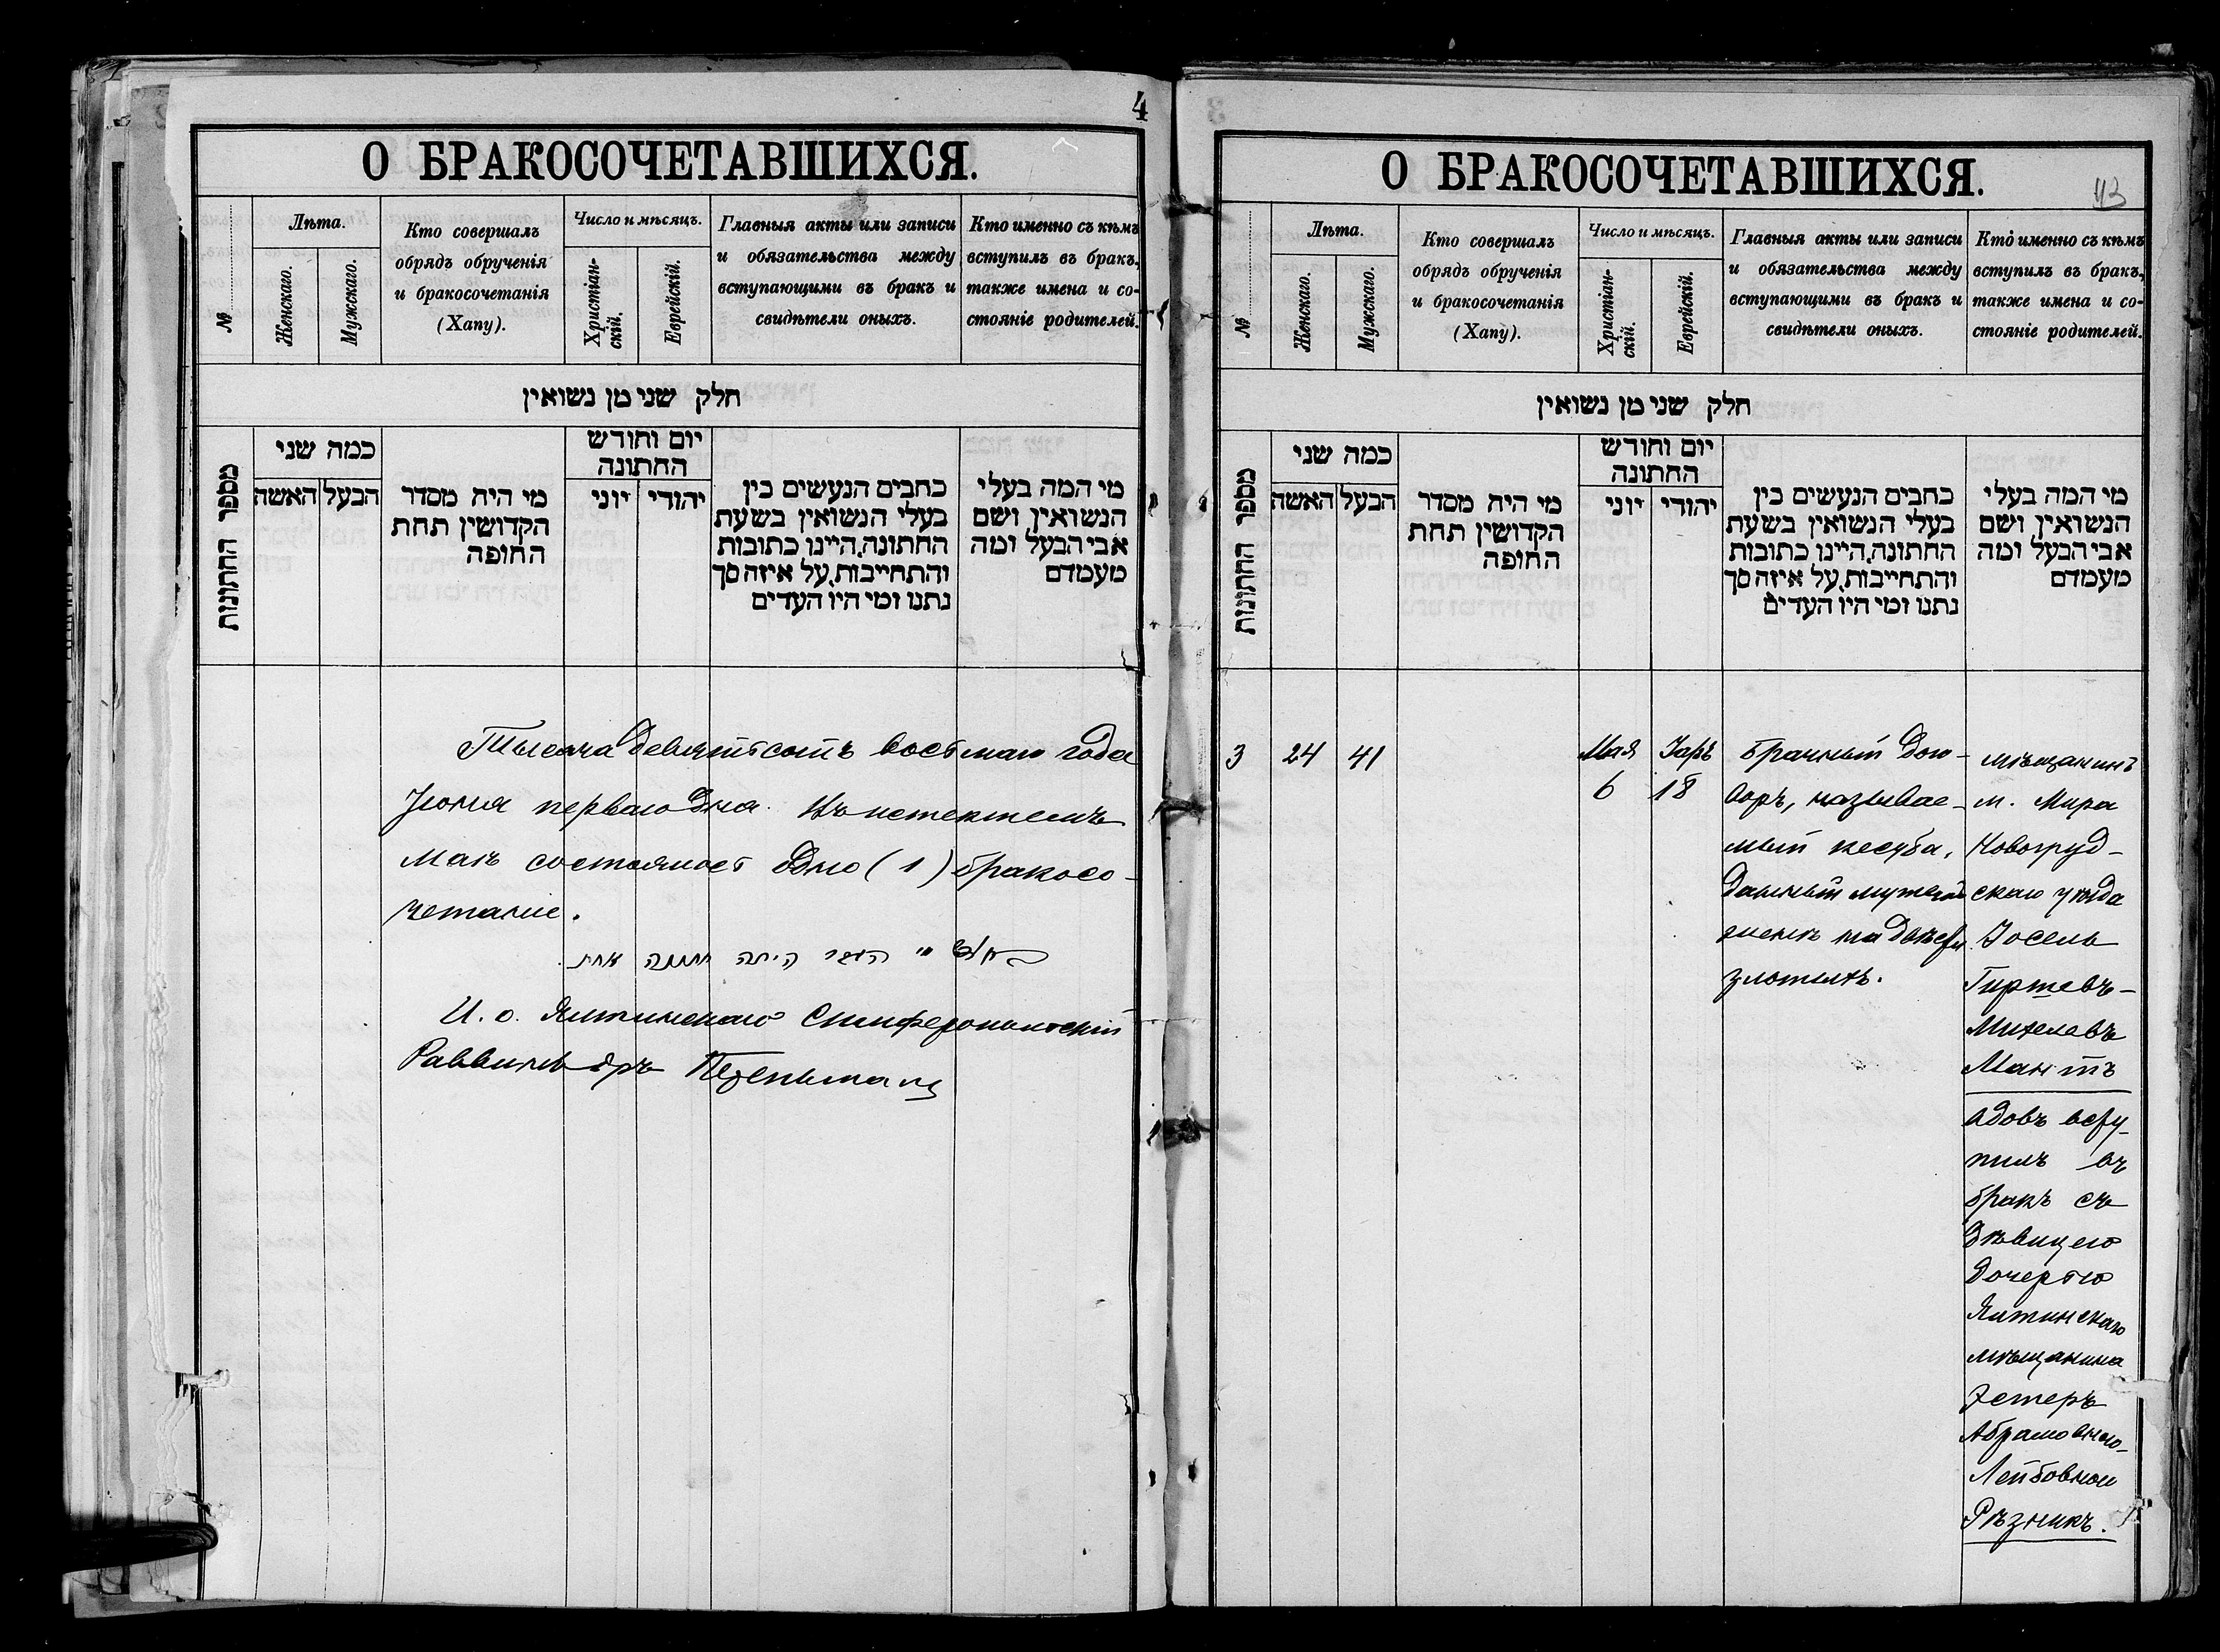 4
О БРАКОСОЧЕТАВШИХСЯ.
№
Лѣта.
Женскаго.
Мужскаго.
Кто совершалъ
обрядъ обрученія
и бракосочетанія
(Хапу).
Число и мѣсяцъ.
Христіан-
скій.
Еврейскій.
Главныя акты или записи
и обязательства между
вступающими въ бракъ и
свидѣтели оныхъ.
Кто именно съ кѣмъ
вступилъ въ бракъ,
также имена и со-
стояніе родителей.
חלק שני מן נשואין
מספר החתונות
כמה שני
האשה
הבעל
מי היה מסדר
הקדושין תחת
החופה
יום וחודש
החתונה
יוני
יהודי
כתבים הנעשים בין
בעלי הנשואין בשעת
החתונה, היינו כתובות
והתחייבות, על איזה סך
נתנו ומי היו העדים
מי המה בעלי
הנשואין ושם
אבי הבעל ומה
מעמדם
Тысяча девятьсотъ восьмаго года
Іюня перваго дня. Въ истекшемъ
маѣ состоялось одно (1) бракосо-
четаніе.
היתה חתונה אחת
И. о. Ялтинскаго Симферопольскій
Раввинъ дръ
О БРАКОСОЧЕТАВШИХСЯ.
43
№
Лѣта.
Женскаго.
Мужскаго.
Кто совершалъ
обрядъ обрученія
и бракосочетанія
(Хапу).
Число и мѣсяцъ.
Христіан-
скій.
Еврейскій.
Главныя акты или записи
и обязательства между
вступающими въ бракъ и
свидѣтели оныхъ.
Кто именно съ кѣмъ
вступилъ въ бракъ,
также имена и со-
стояніе родителей.
חלק שני מן נשואין
מספר החתונות
כמה שני
האשה
הבעל
מי היה מסדר
הקדושין תחת
החופה
יום וחודש
החתונה
יוני
יהודי
כתבים הנעשים בין
בעלי הנשואין בשעת
החתונה, היינו כתובות
והתחייבות, על איזה סך
נתנו ומי היו העדים
מי המה בעלי
הנשואין ושם
אבי הבעל ומה
מעמדם
3
24
41
Мая
6
Іаръ
18
Брачный дого-
воръ, называе-
мый кесуба,
данный мужемъ
женѣ на двѣсти
злотыхъ.
мѣщанинъ
м. Мира
Новогруд-
скаго уѣзда
Іосель
Гиршевъ-
Михелевъ
Мантъ
вдовъ всту-
пилъ въ
бракъ съ
дѣвицею
дочерью
Ялтинскаго
мѣщанина
Эстеръ
Абрамовною-
Лейбовною
Рѣзникъ.